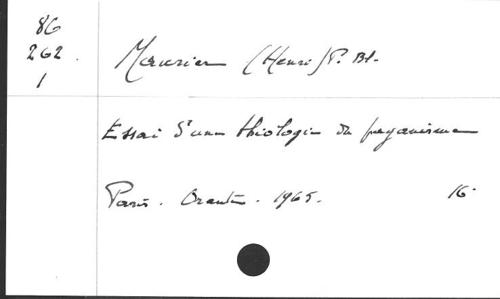 86
262.
1
Maurier (Henri) P. Bl.
Essai d'une théologie du paganisme
Paris. Orante. 1965. 16